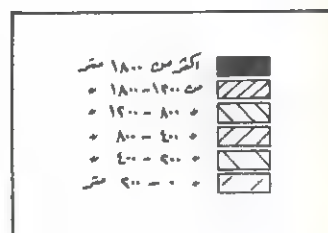 اكثر من ١٨٠٠ متر
من ١٢٠٠-١٨٠٠ «
« ٨٠٠ - ١٢٠٠ «
« ٤٠٠ - ٨٠٠ «
« ٢٠٠ - ٤٠٠ «
« ٠ - ٢٠٠ متر